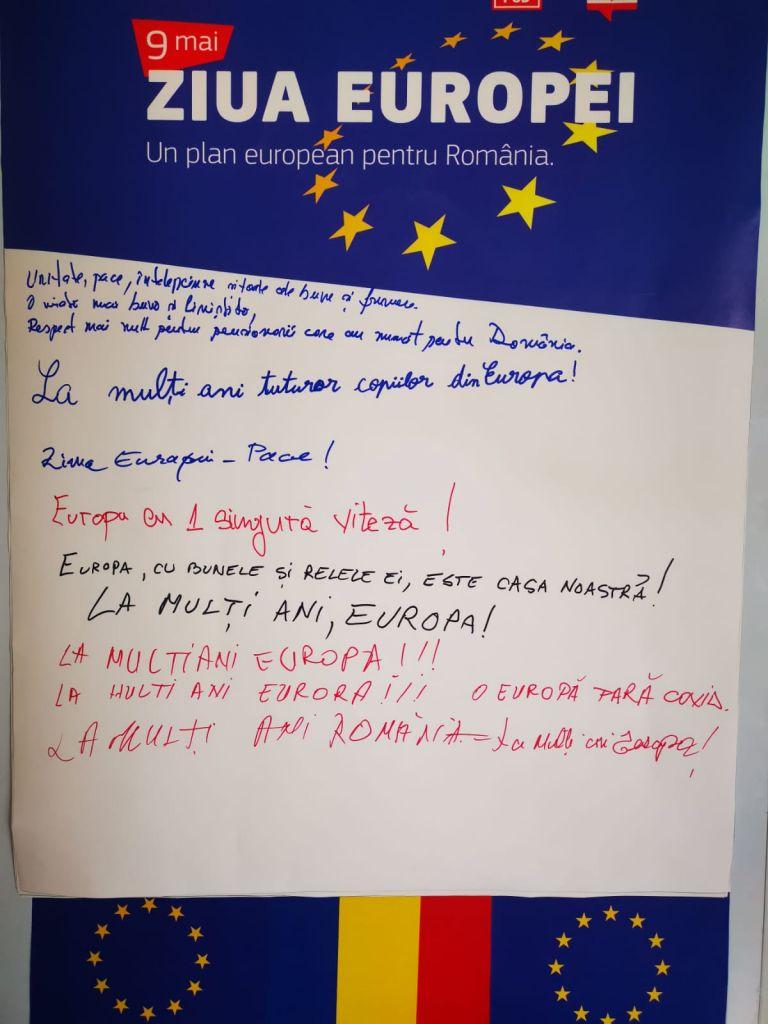 PSD
9 mai
ZIUA EUROPEI
Un plan european pentru România.
Unitate, pace, înțelepciune și toate cele bune și frumoase.
O viață mai bună și liniștită,
Respect mai mult pentru pensionarii care au muncit pentru România.
La mulți ani tuturor copiilor din Europa!
Ziua Europei - Pace!
Europa cu 1 singură viteză!
EUROPA, CU BUNELE ȘI RELELE EI, ESTE CASA NOASTRĂ!
LA MULȚI ANI, EUROPA!
LA MULTI ANI EUROPA!!!
LA MULTI ANI EURORA!!! O EUROPĂ FARĂ COVID.
LA MULȚI ANI ROMÂNIA = La Mulți ani Europa!